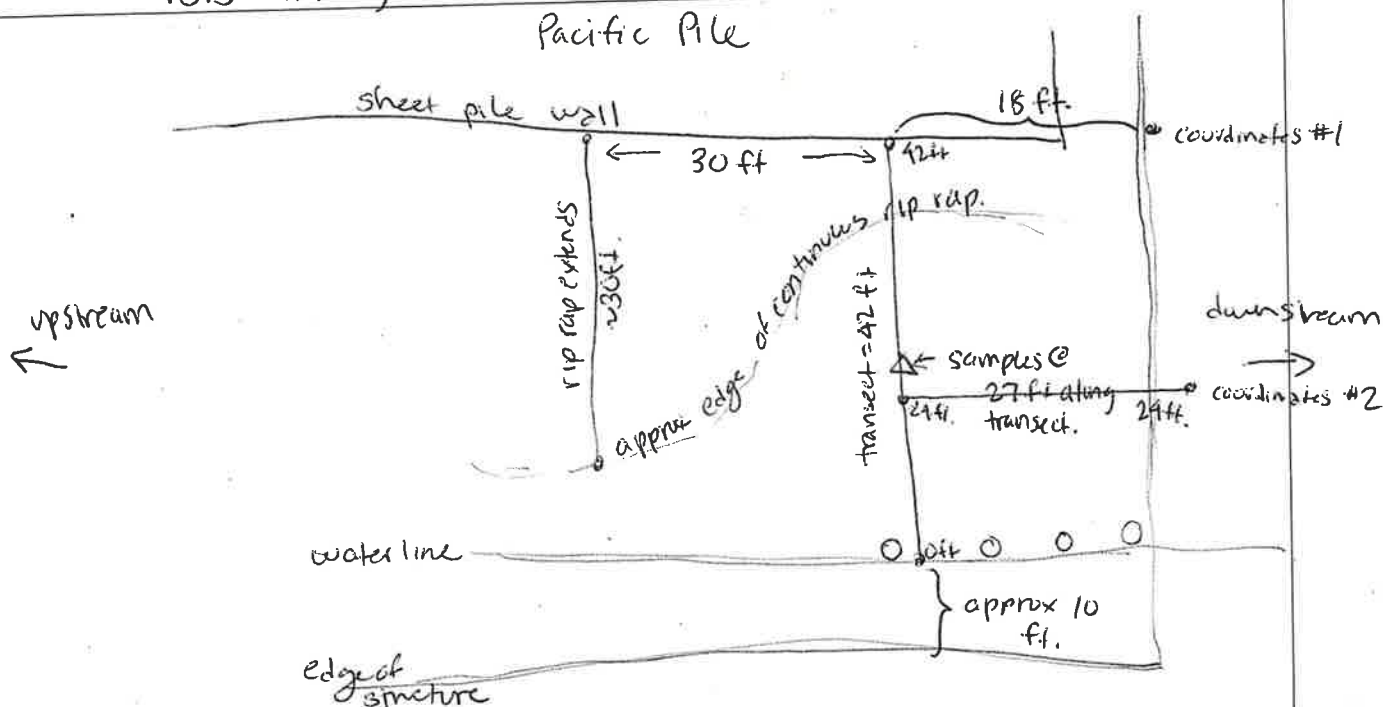 Pacific Pile
sheet pile wall
18 ft.
coordinates #1
30 ft
42ft
rip rap extends
~30ft.
approx edge of continuous rip rap.
transect = 42 ft
upstream
downstream
samples @
27 ft along
transect.
24ft.
24ft.
coordinates #2
waterline
0ft
approx 10
ft.
edge of
structure